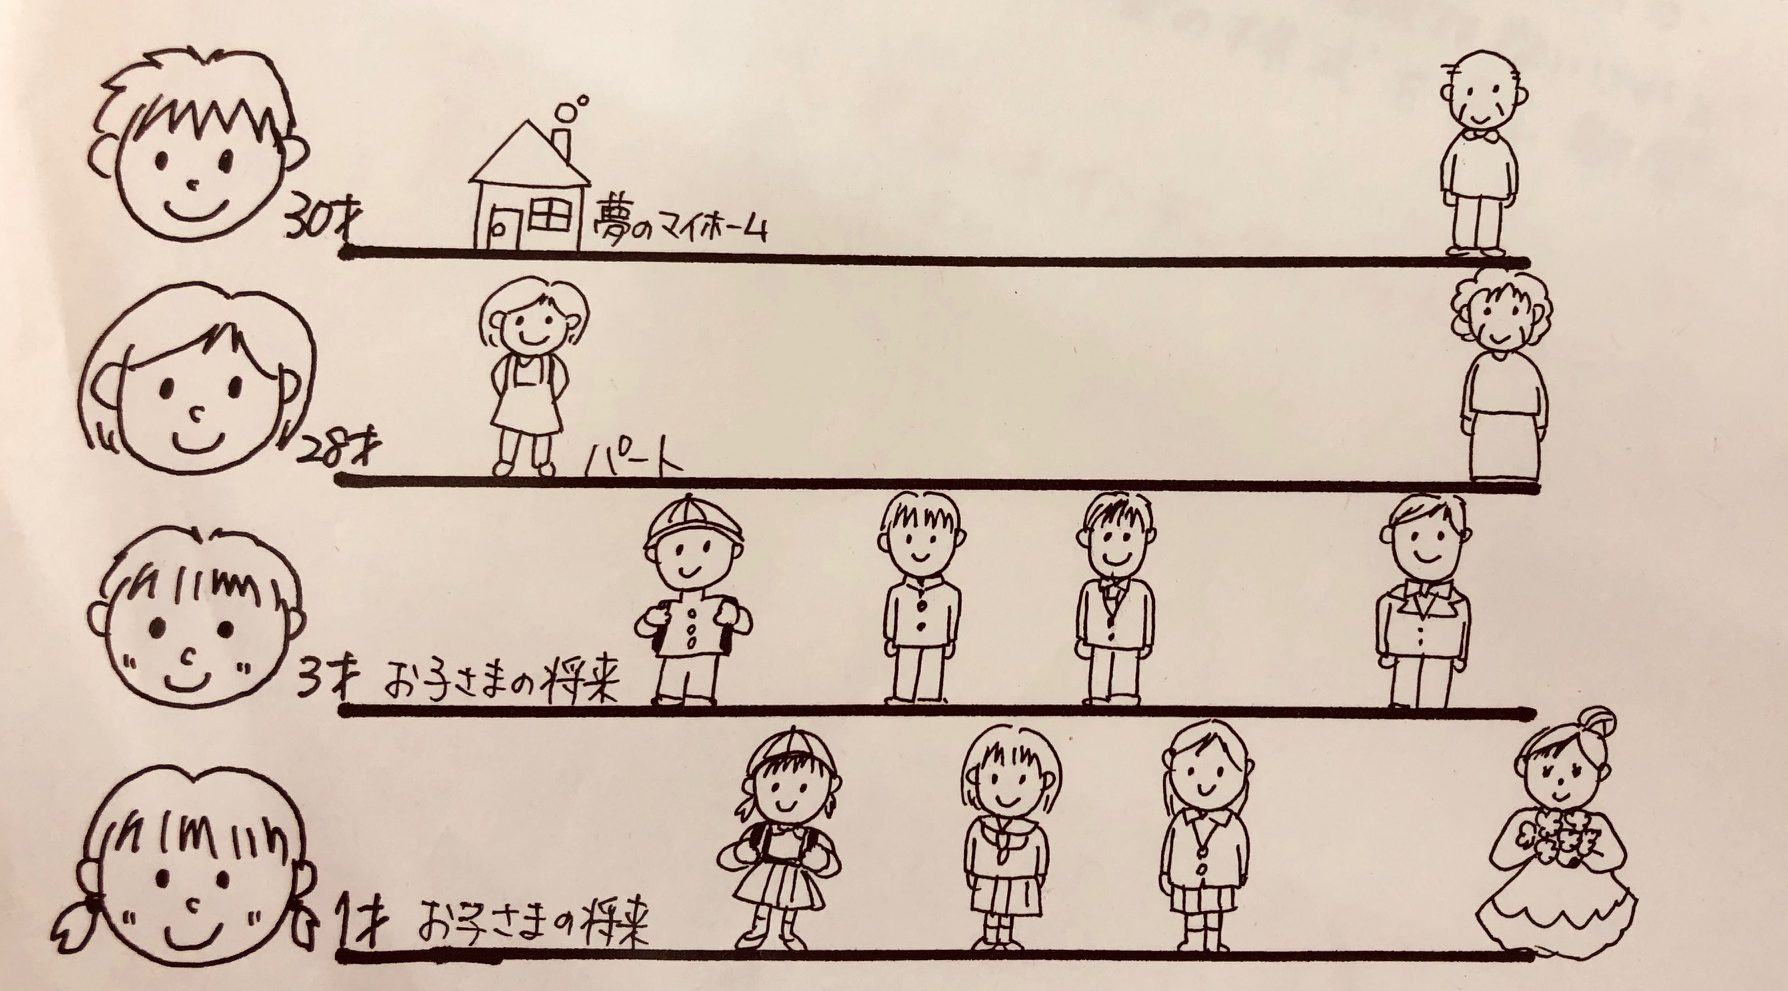 30才
夢のマイホーム
28才
パート
3才 お子さまの将来
1才 お子さまの将来